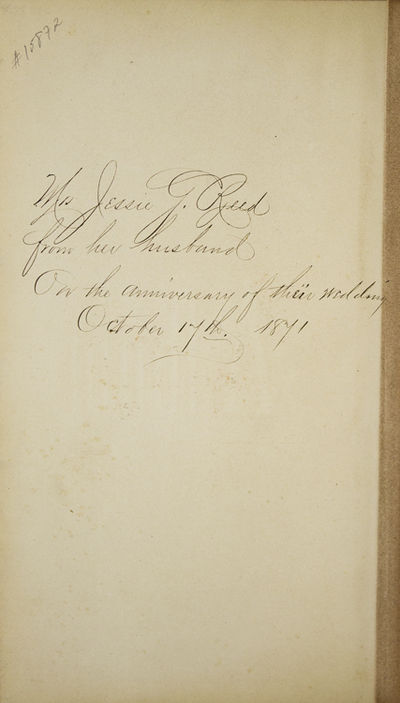 #15872
Mrs Jessie G. Reed
from her husband
On the anniversary of their wedding
October 17th. 1871